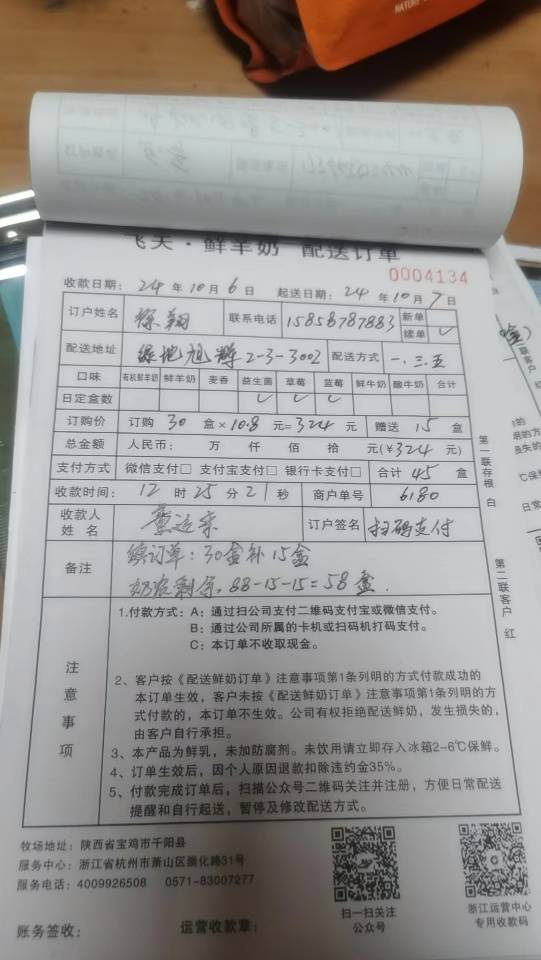 飞天·鲜羊奶 配送订单
0004134
收款日期：24年10月6日 起送日期：24年10月7日
订户姓名 徐翱 联系电话 15858787883 新单 续单 ✓
配送地址 绿地旭辉2-3-3002 配送方式 一.三.五
口味 有机鲜羊奶 鲜羊奶 麦香 益生菌 草莓 蓝莓 鲜牛奶 酸牛奶 合计
日定盒数 ✓ ✓ ✓
订购价 订购 30 盒×10.8元=324元 赠送 15 盒
总金额 人民币： 万 仟 佰 拾 元(¥324元)
支付方式 微信支付□ 支付宝支付□ 银行卡支付□ 合计 45 盒
收款时间：12时25分21秒 商户单号 6180
收款人姓名 订户签名 扫码支付
备注 续订单：30盒补15盒
剩余.88-15-15=58盒.
注意事项
1.付款方式：A：通过扫公司支付二维码支付宝或微信支付。
B：通过公司所属的卡机或扫码机打码支付。
C：本订单不收取现金。
2、客户按《配送鲜奶订单》注意事项第1条列明的方式付款成功的
本订单生效，客户未按《配送鲜奶订单》注意事项第1条列明的方
式付款的，本订单不生效。公司有权拒绝配送鲜奶，发生损失的，
由客户自行承担。
3、本产品为鲜乳，未加防腐剂。未饮用请立即存入冰箱2-6℃保鲜。
4、订单生效后，因个人原因退款扣除违约金35%。
5、付款完成订单后，扫描公众号二维码关注并注册，方便日常配送
提醒和自行起送，暂停及修改配送方式。
第一联存根 白
第二联客户 红
牧场地址：陕西省宝鸡市千阳县
服务中心：浙江省杭州市萧山区崇化路31号
服务电话：4009926508 0571-83007277
扫一扫关注
公众号
浙江运营中心
专用收款码
账务签收： 运营收款章：